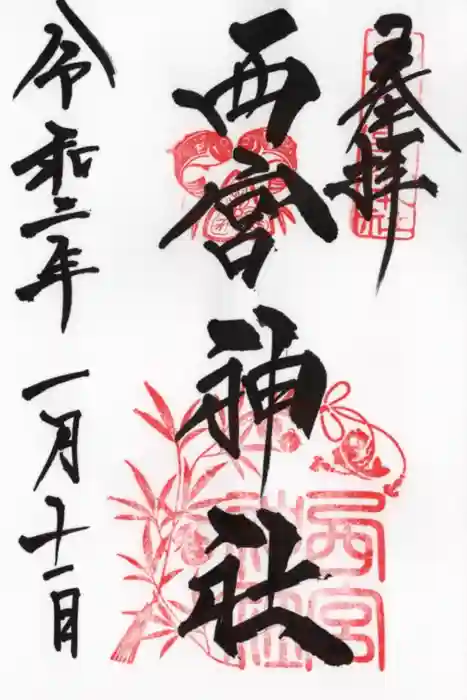 奉拝
西宮神社
令和二年 一月十一日
西宮神社